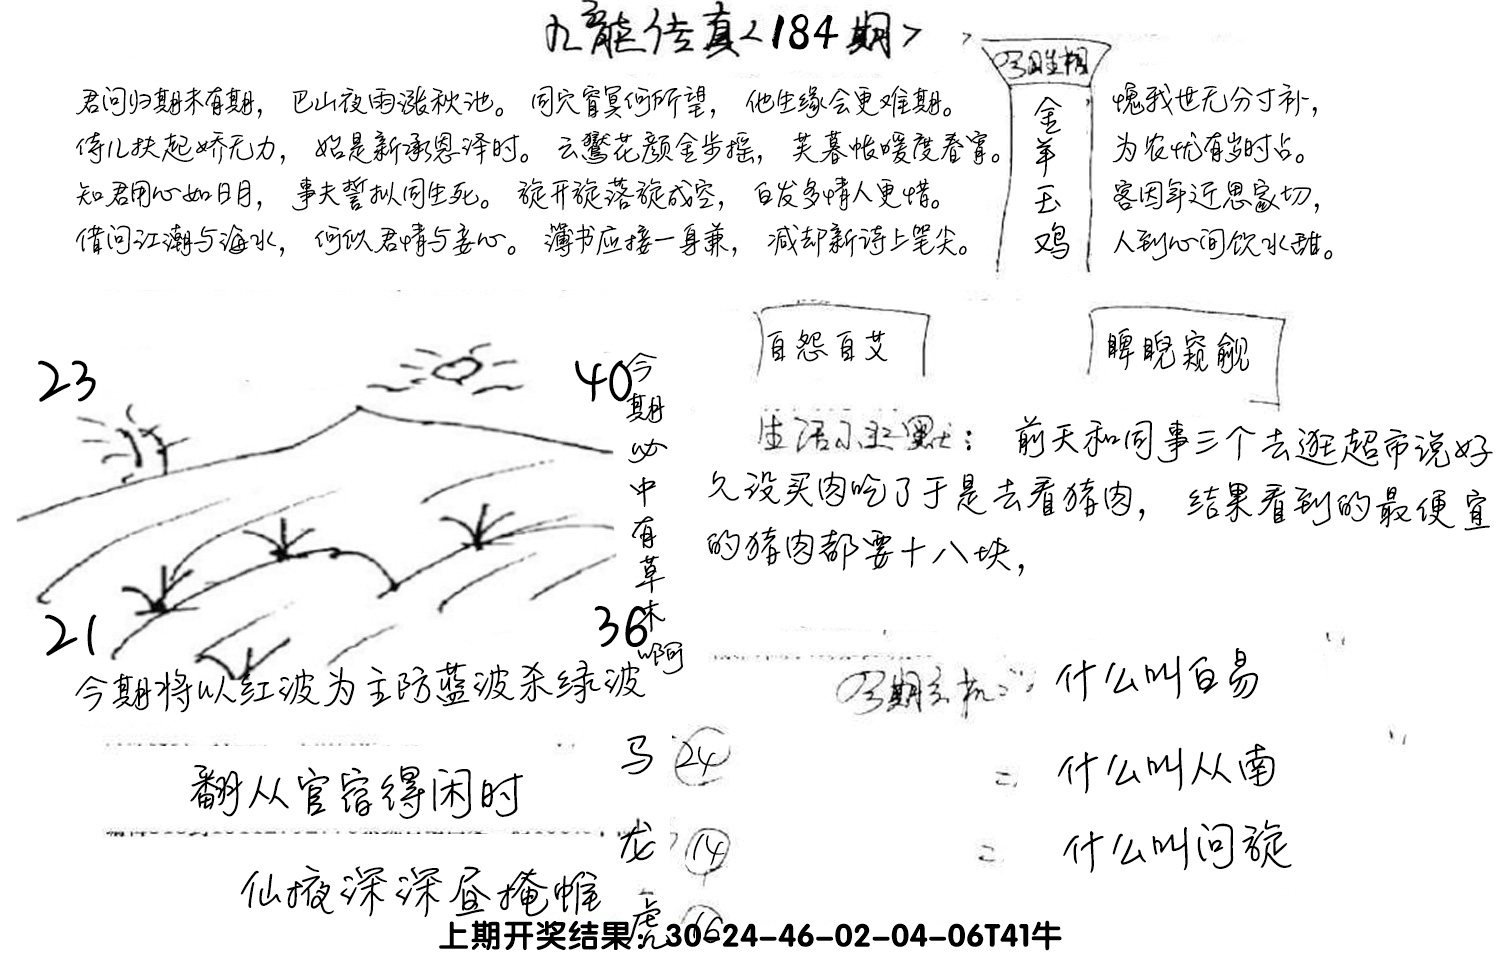 九龙传真<184期>
今期生相
金羊玉鸡
君问归期未有期，巴山夜雨涨秋池。同穴窅冥何所望，他生缘会更难期。
侍儿扶起娇无力，始是新承恩泽时。云鬓花颜金步摇，芙蓉帐暖度春宵。
知君用心如日月，事夫誓拟同生死。旋开旋落旋成空，白发多情人更惜。
借问江潮与海水，何似君情与妾心。薄书应接一身兼，减却新诗上笔尖。
愧我世无分寸补，
为农忧有岁时占。
客因年近思家切，
人到心闲饮水甜。
23
40
21
36
今期必中有草木啊
自怨自艾
睥睨窥觎
生活小幽默：前天和同事三个去逛超市说好
久没买肉吃了于是去看猪肉，结果看到的最便宜
的猪肉都要十八块，
今期将以红波为主防蓝波杀绿波
翻从官宿得闲时
仙掖深深昼掩帷
马 24
龙 14
虎 16
今期玄机：什么叫白易
= 什么叫从南
= 什么叫问旋
上期开奖结果：30-24-46-02-04-06T41牛